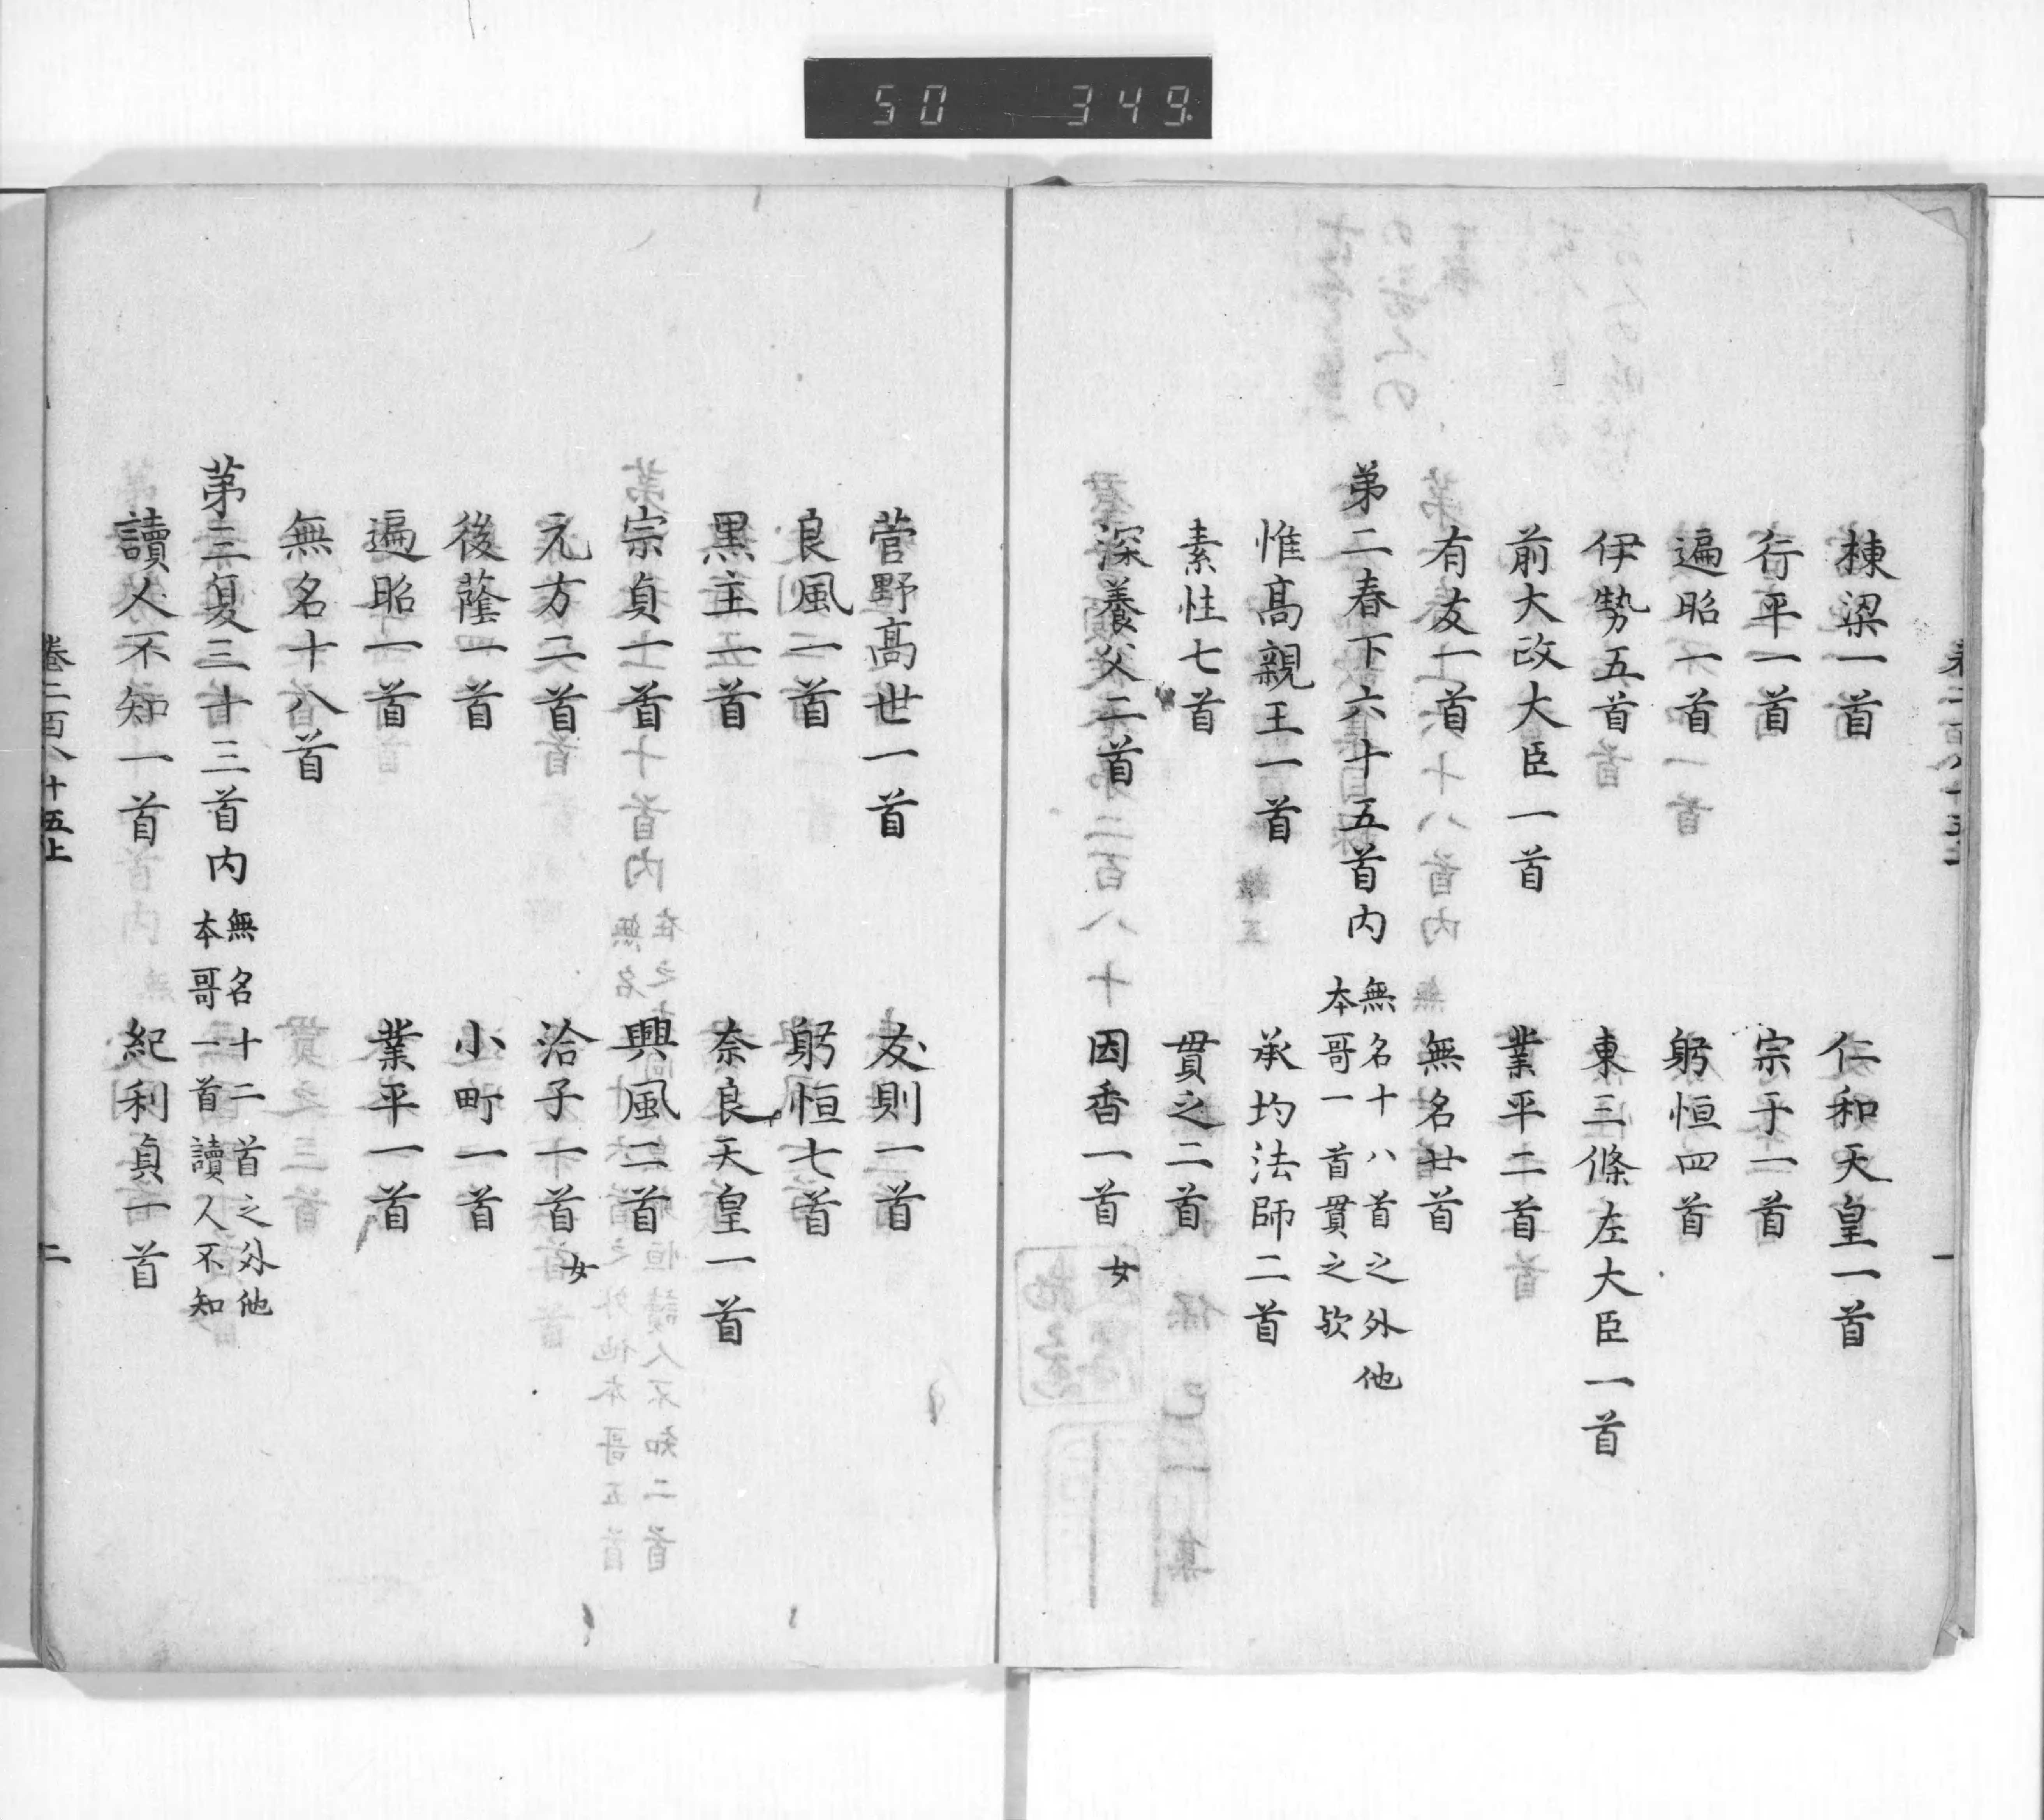 50 349
棟梁一首 仁和天皇一首
行平一首 宗于一首
遍昭一首 躬恒四首
伊勢五首 東三條左大臣一首
前大政大臣一首 業平二首
有友一首 無名廿首
第二春下六十五首内 無名十八首之外他
本哥一首貫之欤
惟髙親王一首 承均法師二首
素性七首 貫之二首
深養父二首 因香一首 女
菅野髙世一首 友則一首
良風一首 躬恒七首
黒主一首 奈良天皇一首
宗貞一首 興風二首
元方二首 洽子一首 女
後蔭一首 小町一首
遍昭一首 業平一首
無名十八首
第三夏三十三首内 無名十二首之外他
本哥一首讀人不知
讀人不知一首 紀利貞一首
卷二百八十五上 二